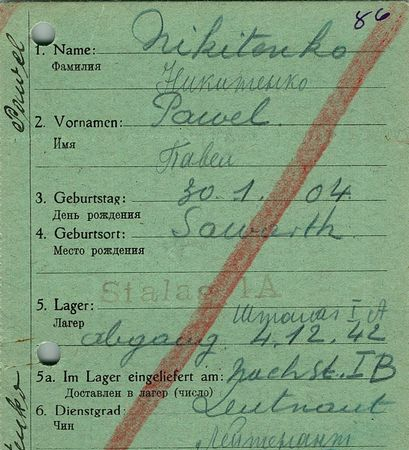 86
1. Name: Nikitenko
Фамилия Никитенко
2. Vornamen: Pawel
Имя Павел
3. Geburtstag: 30.1.04
День рождения
4. Geburtsort: Sawarth
Место рождения
Stalag IA
5. Lager: Шталаг I A
Лагер abgang 4.12.42
5a. Im Lager eingeliefert am: nach St. I B
Доставлен в лагер (число)
6. Dienstgrad: Leutnant
Чин Лейтенант
Pawel
tenko